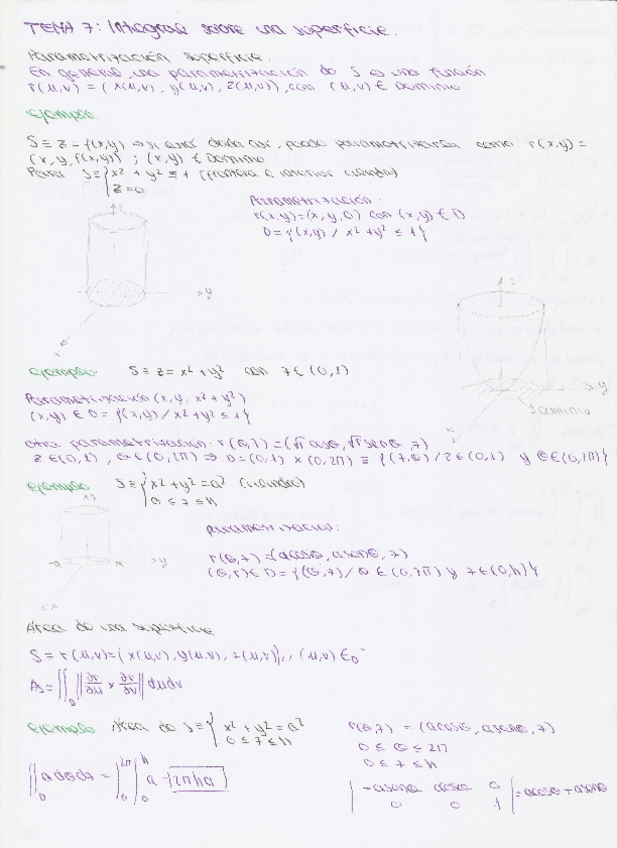 TEMA 7: Integral sobre una superficie.
Parametrización superficie.
En general una parametrización de S es una función
r(u,v) = (x(u,v), y(u,v), z(u,v)), con (u,v) ∈ Dominio
ejemplo
S ≡ z = f(x,y) ⇒ si está dada así, puedo parametrizarla como r(x,y) =
(x, y, f(x,y)) ; (x,y) ∈ Dominio
Para S ≡ { x² + y² ≤ 1 (frontera e interior cilindro)
z = 0
Parametrización:
r(x,y) = (x, y, 0) con (x,y) ∈ D
D = {(x,y) / x² + y² ≤ 1}
z
y
x
ejemplo S ≡ z = x² + y² con z ∈ (0,1)
z
y
x
Dominio
Parametrización (x, y, x² + y²)
(x,y) ∈ D = {(x,y) / x² + y² ≤ 1}
otra parametrización: r(θ,z) = (√z cosθ, √z senθ, z)
z ∈ (0,1), θ ∈ (0,2π) ⇒ D = (0,1) x (0,2π) ≡ {(z,θ) / z ∈ (0,1) y θ ∈ (0,2π)}
ejemplo S ≡ { x² + y² = a² (cilindro)
0 ≤ z ≤ h
z
a a y
x
parametrización:
r(θ,z) = (a cosθ, a senθ, z)
(θ,r) ∈ D = {(θ,z) / θ ∈ (0,2π) y z ∈ (0,h)}
Área de una superficie
S = r(u,v) = (x(u,v), y(u,v), z(u,v)), (u,v) ∈ D
A_S = ∬_D ‖∂r/∂u x ∂r/∂v‖ du dv
ejemplo Área de S ≡ { x² + y² = a²
0 ≤ z ≤ h
r(θ,z) = (a cosθ, a senθ, z)
0 ≤ θ ≤ 2π
0 ≤ z ≤ h
∬_D a dθ dz = ∫_0^{2π} ∫_0^h a = 2πha
| -a senθ a cosθ 0
0 0 1 | = a cosθ + a senθ